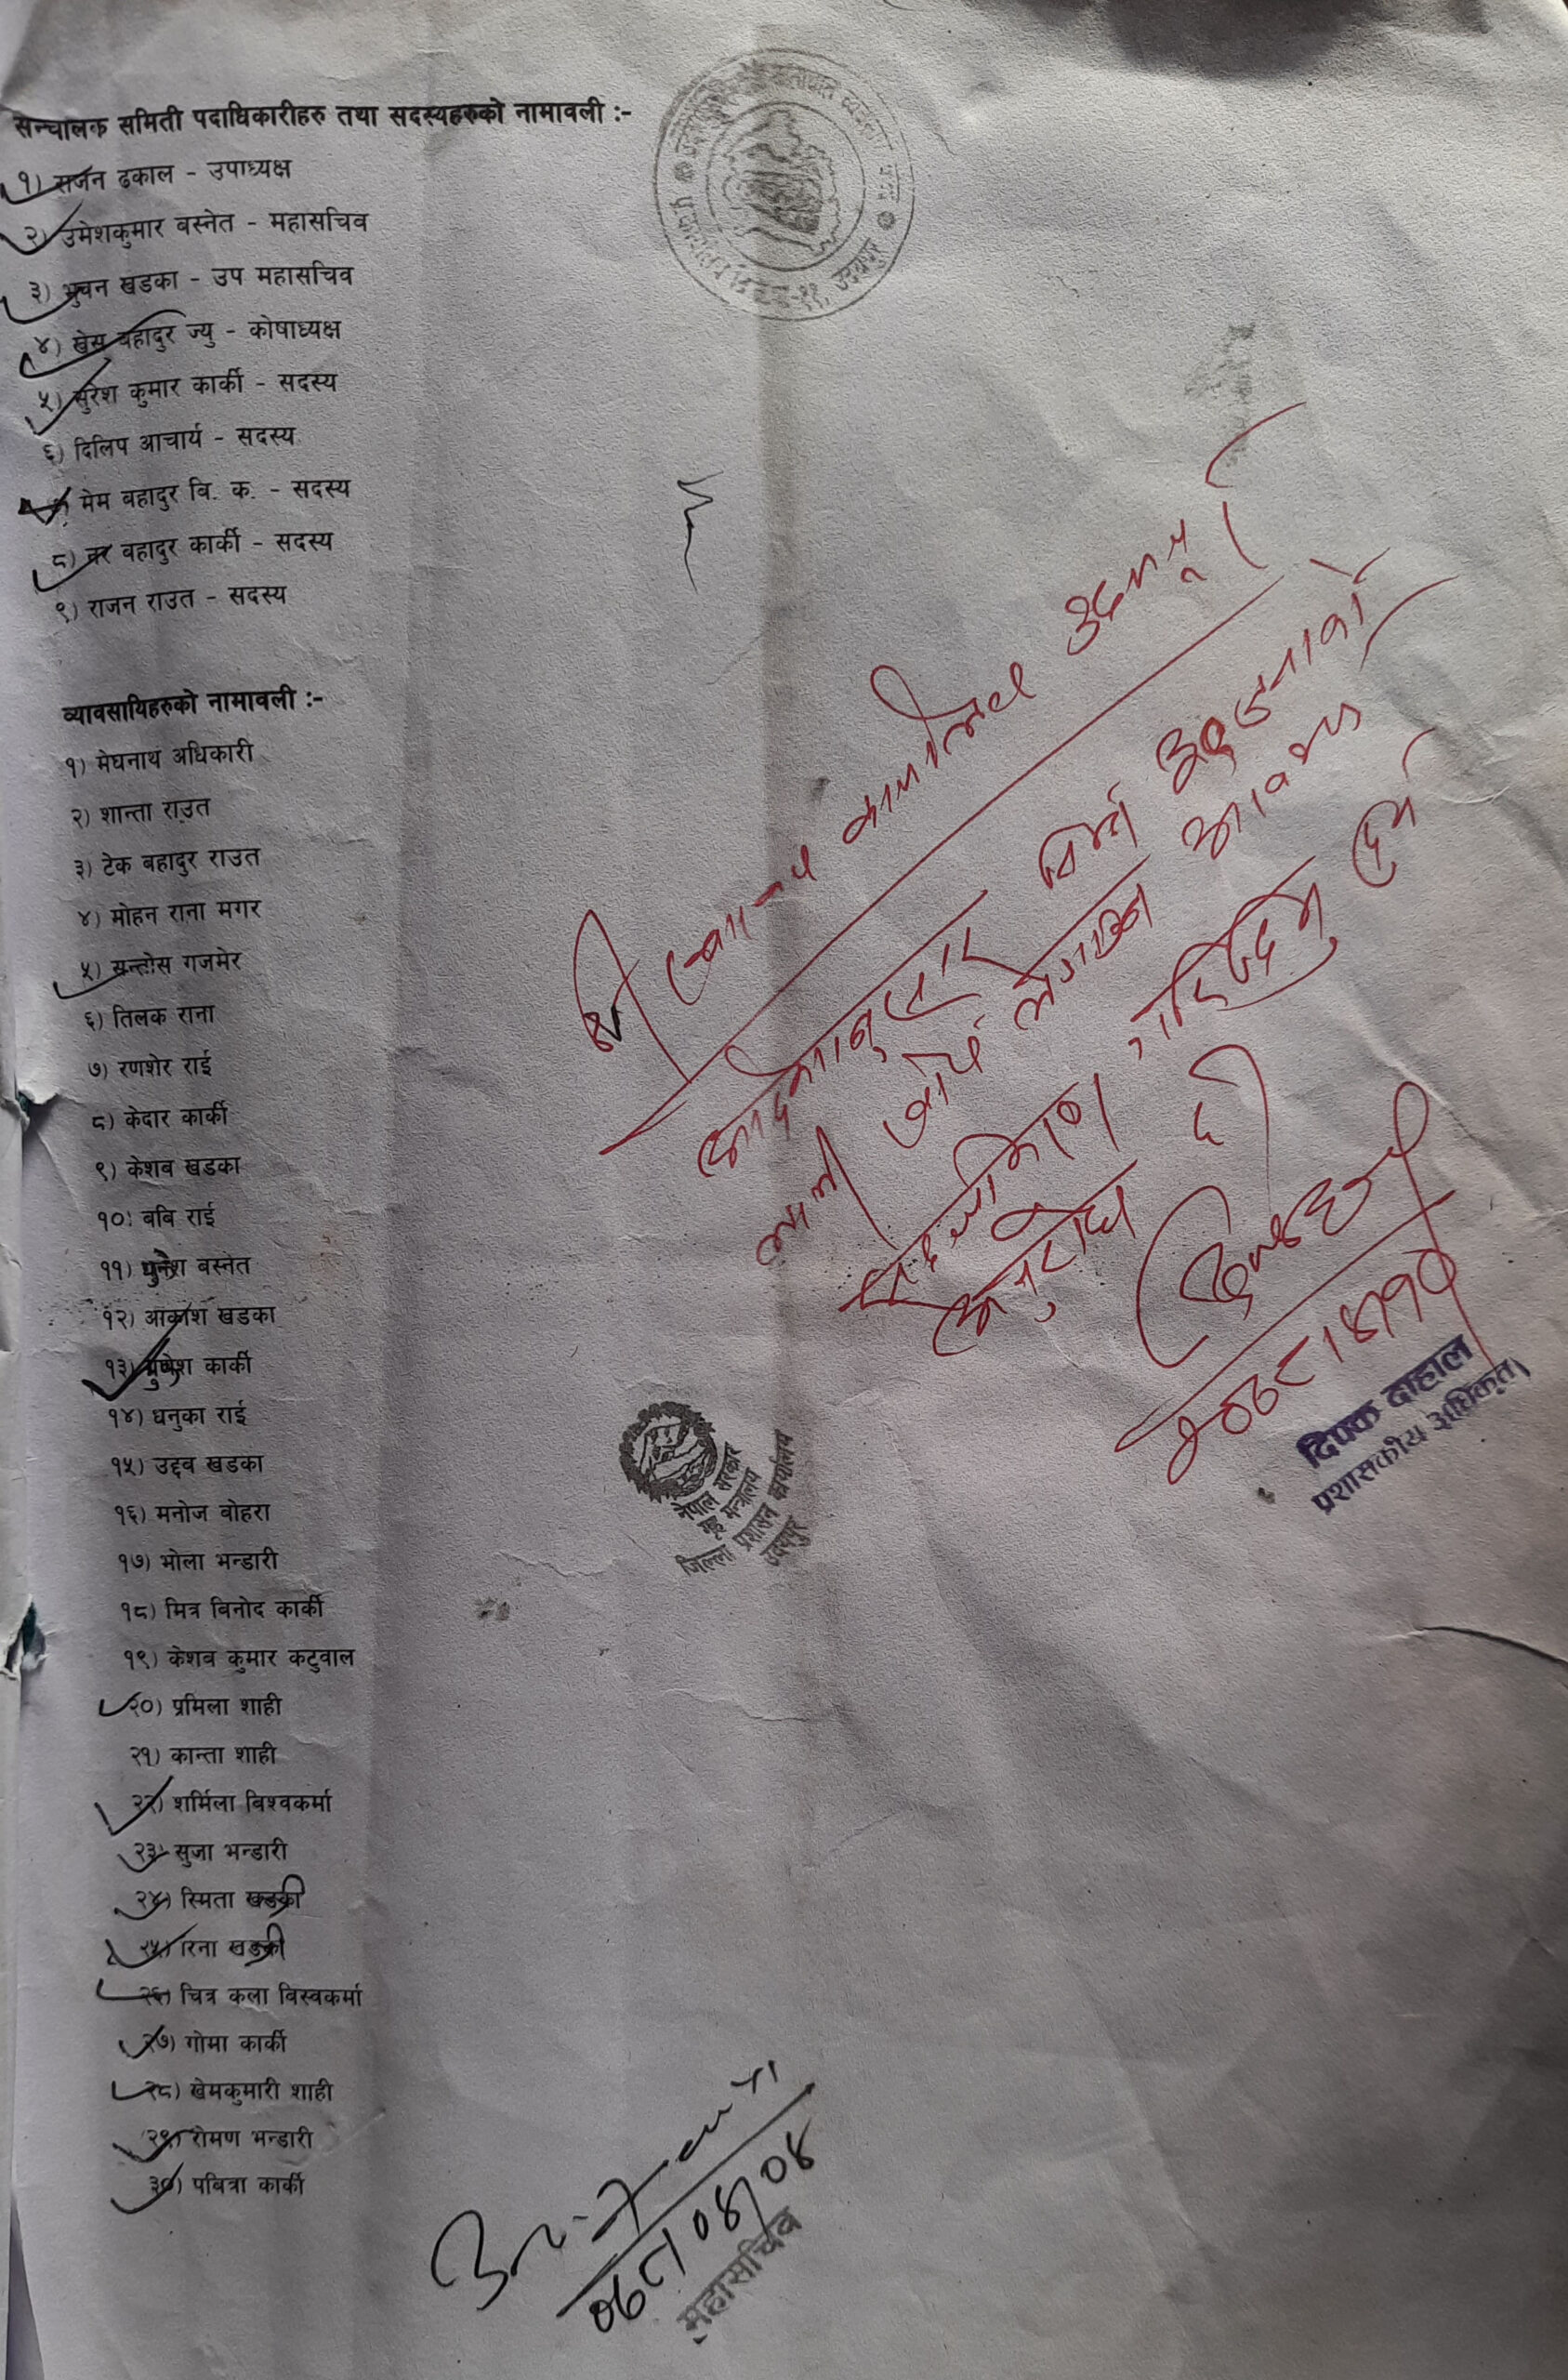 सन्चालक समिती पदाधिकारीहरु तथा सदस्यहरुको नामावली :-
१) राजन ढकाल - उपाध्यक्ष
२) उमेशकुमार बस्नेत - महासचिव
३) भुवन खडका - उप महासचिव
४) खेम बहादुर ज्यु - कोषाध्यक्ष
५) सुरेश कुमार कार्की - सदस्य
६) दिलिप आचार्य - सदस्य
मेम बहादुर वि. क. - सदस्य
८) बहादुर कार्की - सदस्य
९) राजन राउत - सदस्य
व्यावसायिहरुको नामावली :-
१) मेघनाथ अधिकारी
२) शान्ता राउत
३) टेक बहादुर राउत
४) मोहन राना मगर
५) सन्तोस गजमेर
६) तिलक राना
७) रणशेर राई
८) केदार कार्की
९) केशब खडका
१०: बबि राई
११) बस्नेत
१२) आकाश खडका
१३) कार्की
१४) धनुका राई
१५) उद्दव खडका
१६) मनोज बोहरा
१७) भोला भन्डारी
१८) मित्र बिनोद कार्की
१९) केशब कुमार कटुवाल
२०) प्रमिला शाही
२१) कान्ता शाही
२२) शर्मिला बिश्वकर्मा
२३) सुजा भन्डारी
२४) स्मिता खड्की
२५) रिना खड्की
२६) चित्र कला विस्वकर्मा
२७) गोमा कार्की
२८) खेमकुमारी शाही
२९) रोमण भन्डारी
३०) पबित्रा कार्की
उदयपुर
श्री स्वास्थ्य कार्यालय उदयपुर
आदेशानुसार
अनुरोध छ
दिपक दाहाल
प्रशासकीय अधिकृत
नेपाल सरकार
गृह मन्त्रालय
जिल्ला प्रशासन कार्यालय
उदयपुर
महासचिव